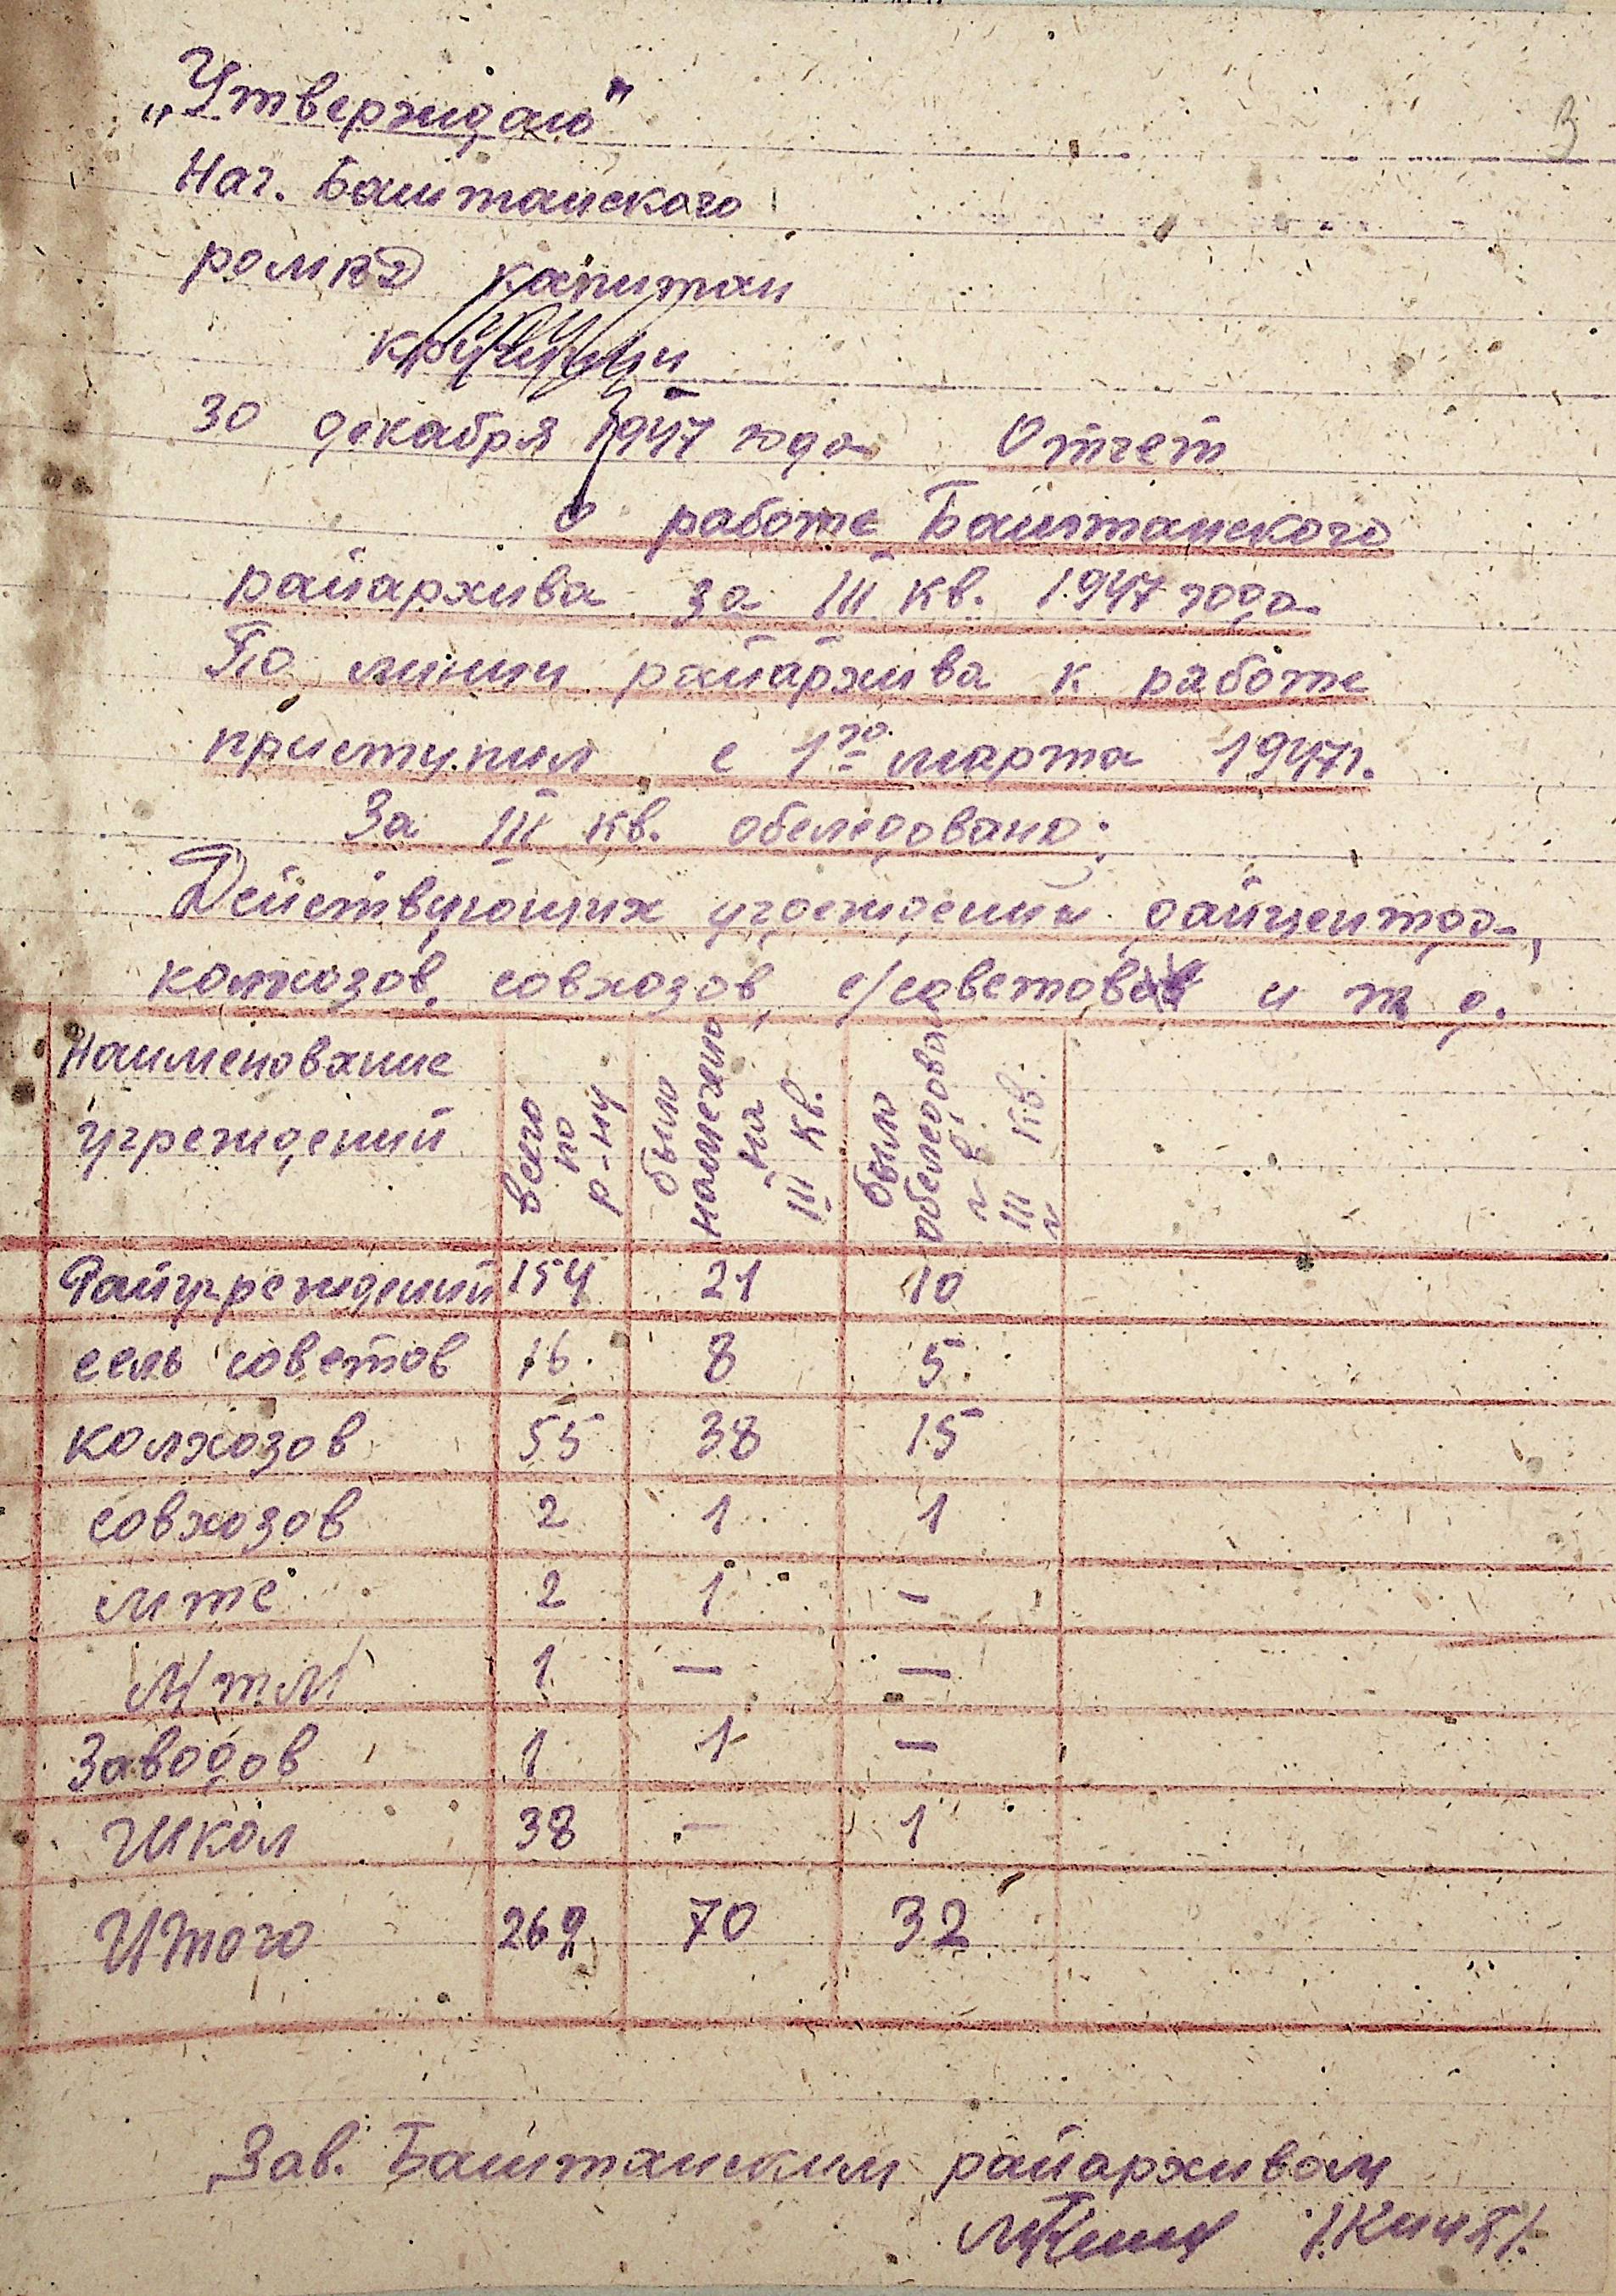 3
„Утверждаю"
Нач. Баштанского
РОМВД капитан
30 декабря 1947 года Отчет
о работе Баштанского
райархива за III кв. 1947 года
По линии райархива к работе
приступил с 1го марта 1947г.
За III кв. обследовано:
Действующих учреждений райцентра,
колхозов, совхозов, с/советов и т д.
Наименование учреждений | всего по р-ну | было намечено на III кв. | было обследован в III кв.
Райучреждений 154 21 10
сель советов 16 8 5
колхозов 55 38 15
совхозов 2 1 1
мтс 2 1 –
МТМ 1 — —
Заводов 1 1 —
Школ 38 — 1
Итого 269 70 32
Зав. Баштанским райархивом